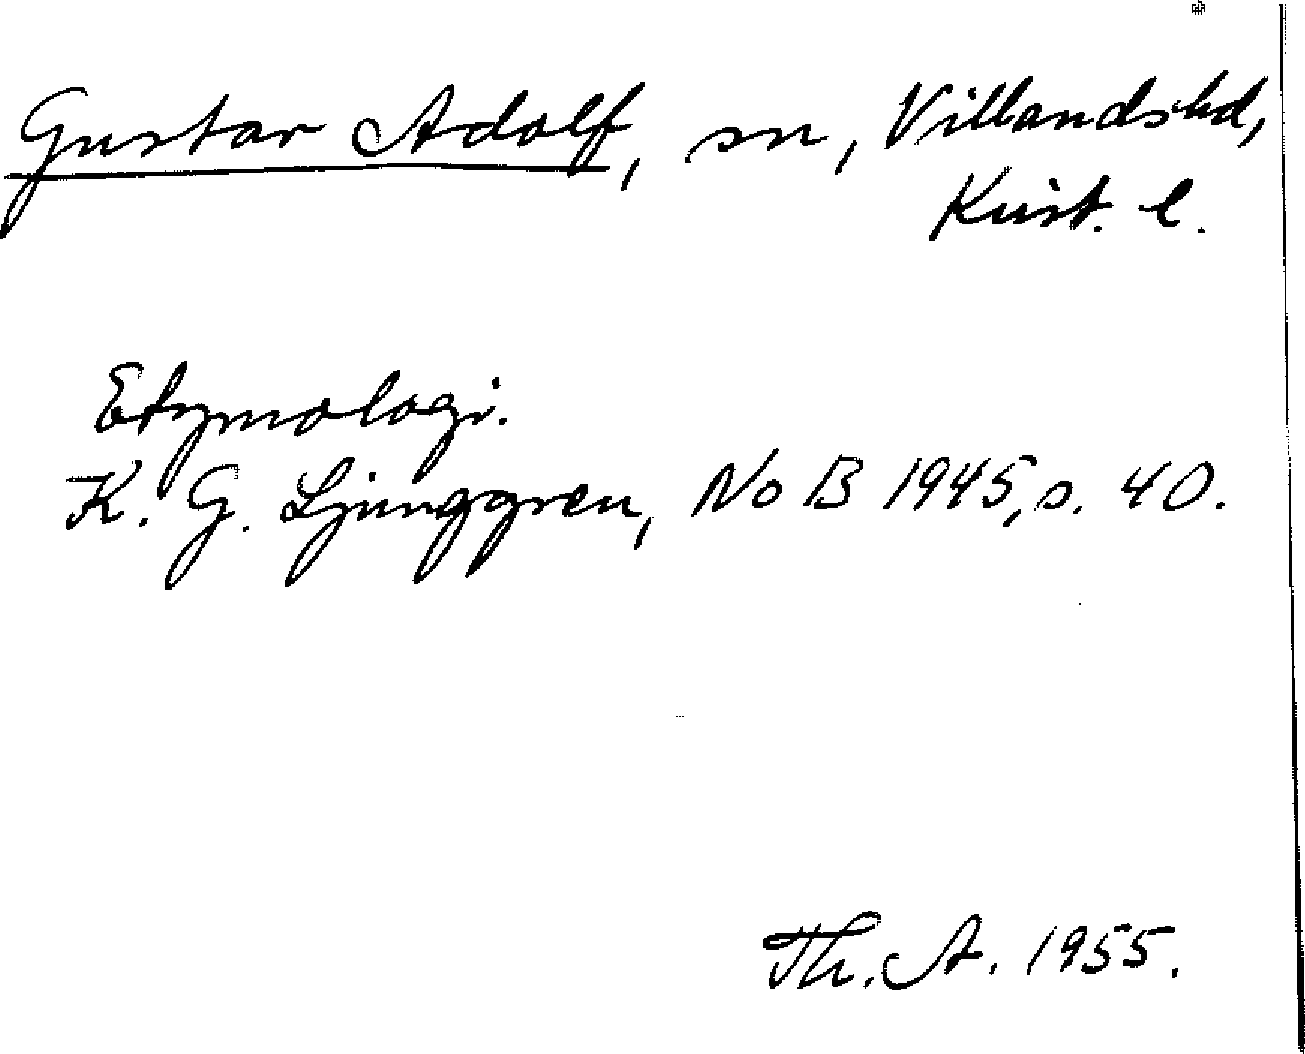 Gustav Adolf, sn, Villandshd,
Krist. l.
Etymologi.
K. G. Ljunggren, NoB 1945, s. 40.
Th. A. 1955.